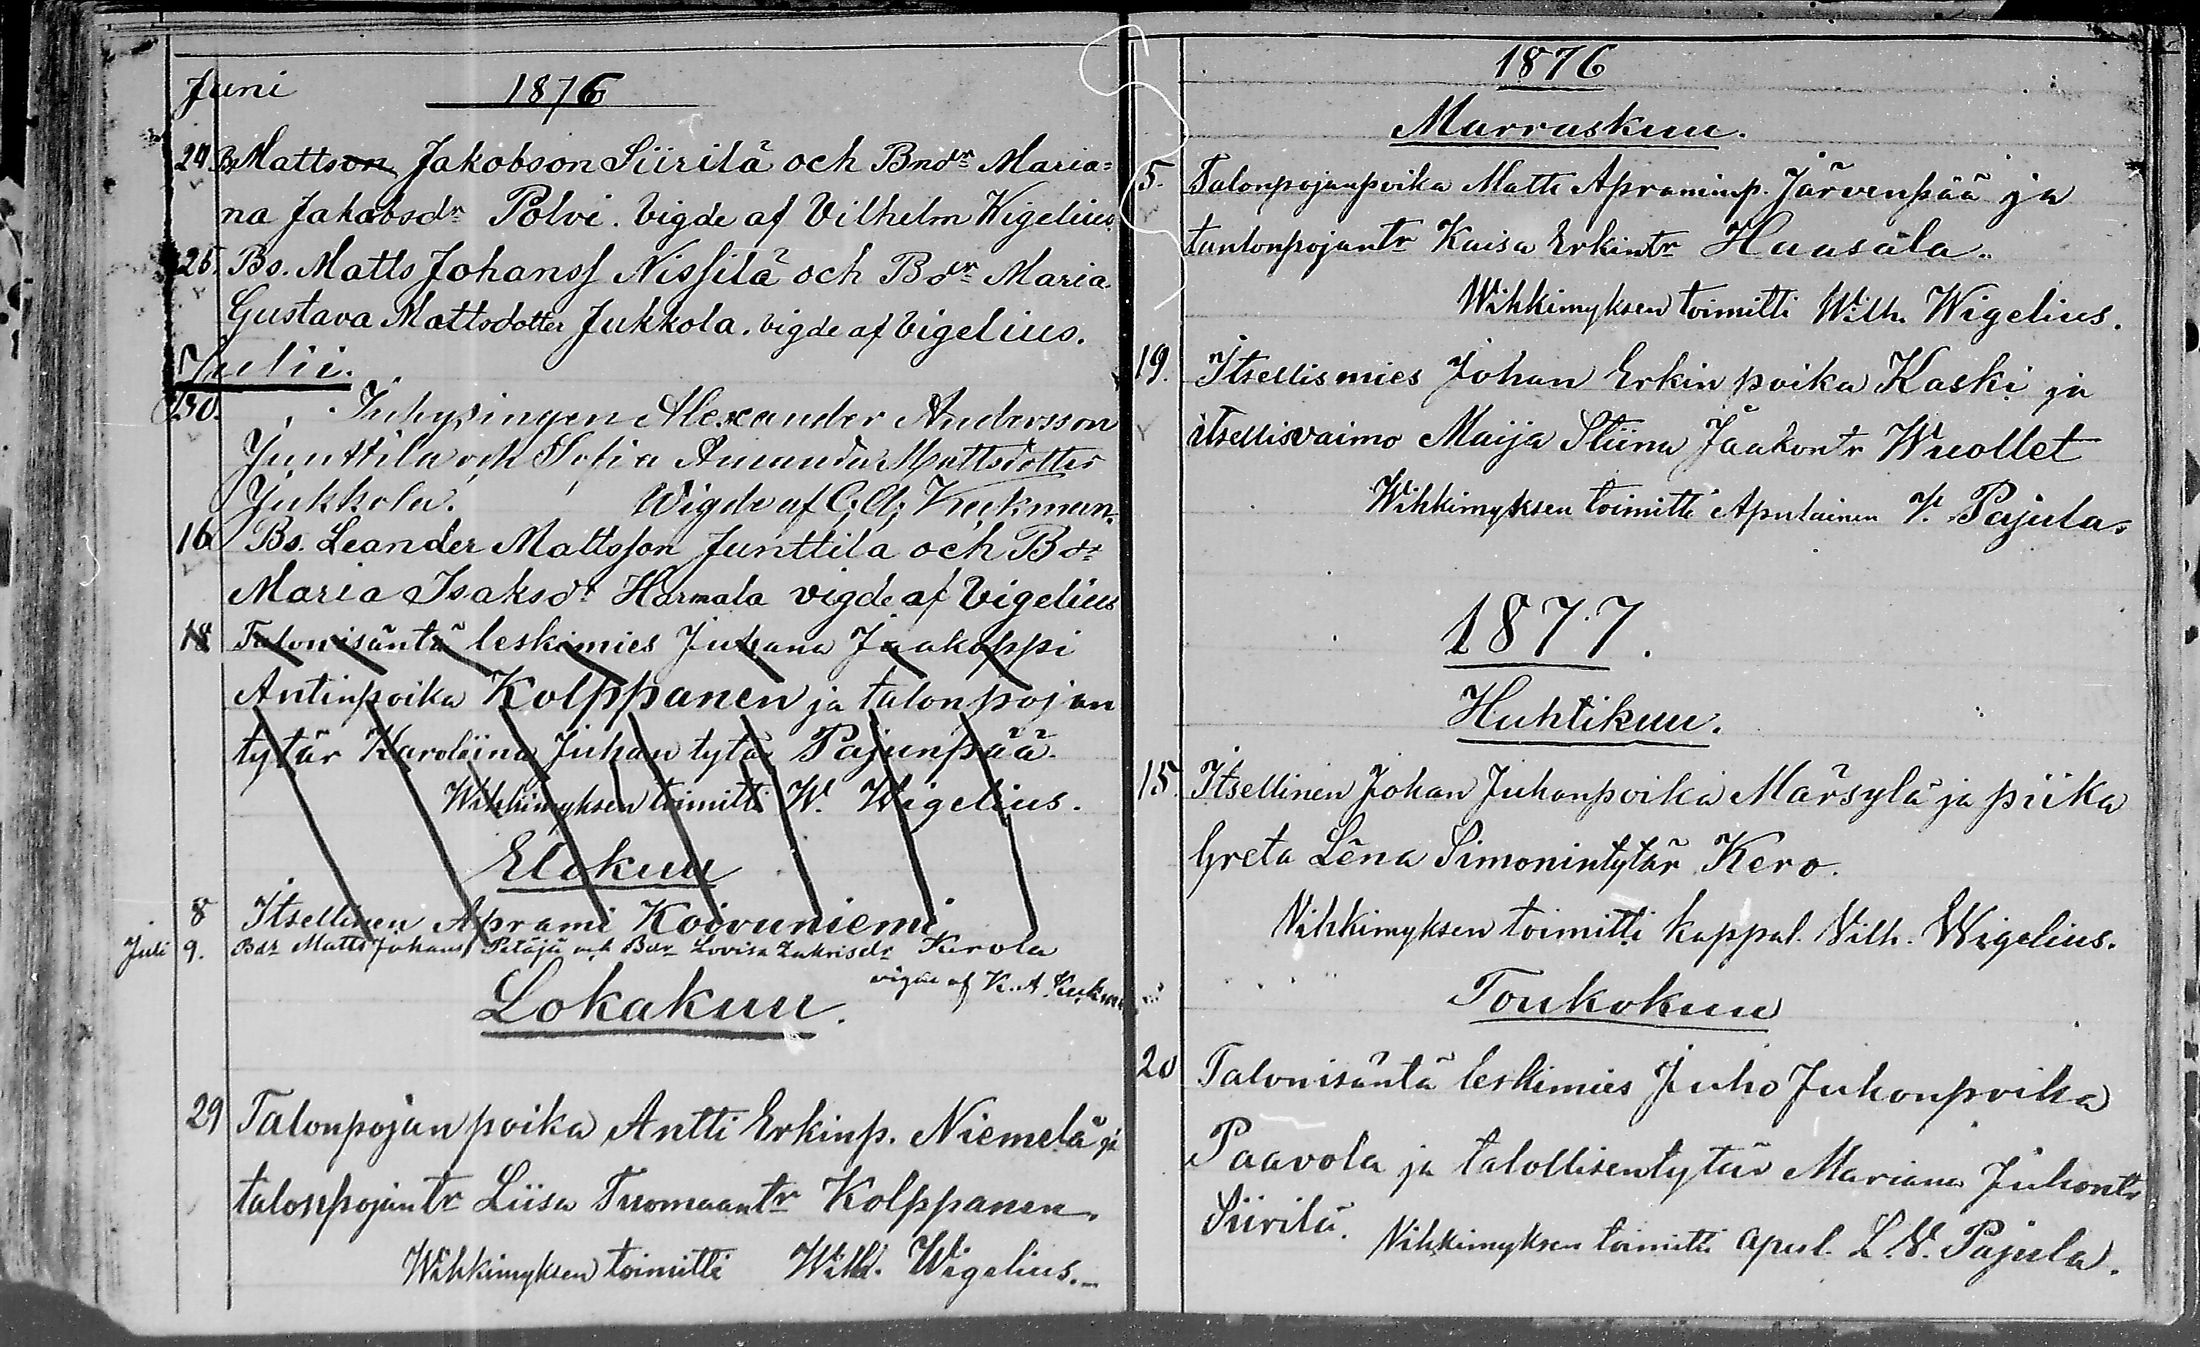 Juni 1876
24 Bs Mattson Jakobson Siirilä och Bndr Maria=
na Jakobsdr Polvi. Vigde af Vilhelm Wigelius.
25. Bs. Matts Johanss Nissilä och Bdr Maria
Gustava Mattsdotter Jukkola. vigde af Vigelius.
Julii.
30. Inhysingen Alexander Andersson
Junttila och Sofia Amanda Mattsdotter
Jukkola. Wigde af Keckman.
16 Bs. Leander Mattsson Junttila och Bdr
Maria Isaksdr Harmala vigde af Vigelius
18 Talonisäntä leskimies Juhana Jaakoppi
Antinpoika Kolppanen ja talonpojan
tytär Karoliina Juhan tytär Pajunpää.
Wihkimyksen toimitti W. Wigelius.
Elokuu
8 Itsellinen Aprami Koivuniemi
Juli 9. Matts Johans Petäjä och Bdr Lovisa Zakrisdr Kerola
vigde af K. A. Keckman
Lokakuu.
29 Talonpojan poika Antti Erkinp. Niemelä ja
talonpojantr Liisa Tuomaantr Kolppanen.
Wihkimyksen toimitti Wilh. Wigelius.
1876
Marraskuu.
5. Talonpojanpoika Matti Apraminp. Järvenpää ja
tantonpojantr Kaisa Erkintr Haasala.
Wihkimyksen toimitti Wilh. Wigelius.
19. Itsellismies Johan Erkin poika Kaski ja
itsellisvaimo Maija Stiina Jaakontr Wuollet
Wihkimyksen toimitti Apulainen V. Pajula.
1877.
Huhtikuu.
15. Itsellinen Johan Juhanpoika Märsylä ja piika
Greta Lena Simonintytär Kero.
Vihkimyksen toimitti kappal. Vilh. Wigelius.
Toukokuu
20 Talonisäntä leskimies Juho Juhonpoika
Paavola ja talollisentytär Mariana Juhontr
Siirilä. Vihkimyksen toimitti apul. L. V. Pajula.